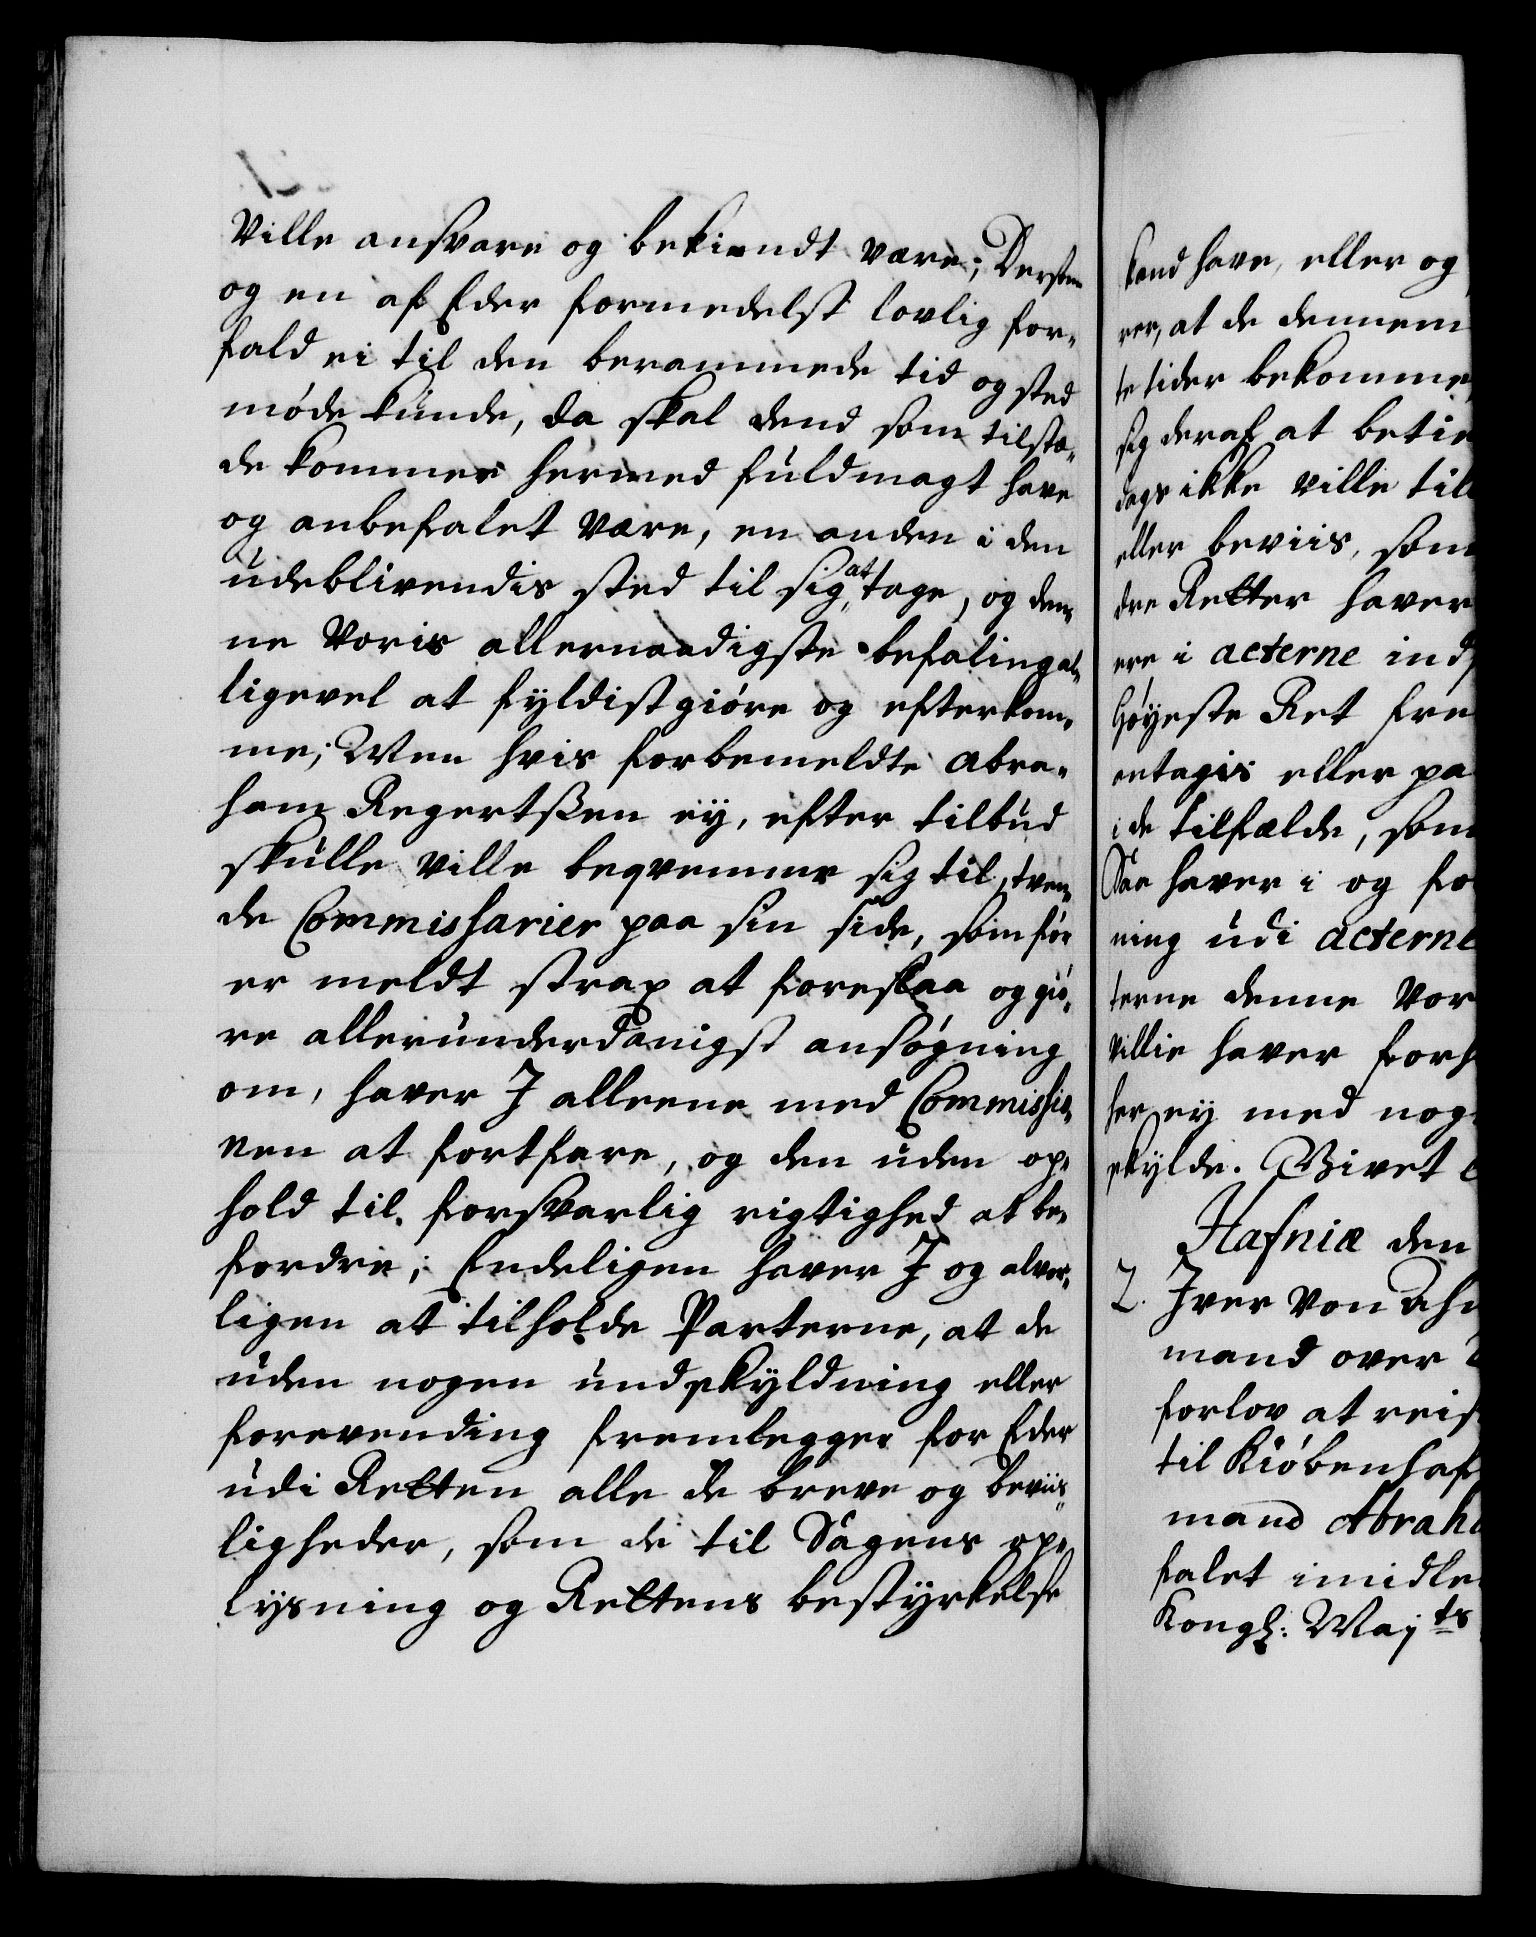 Ville ansvare og bekiendt være; Dersom
og en af Eder formedelst lovlig for-
fald ei til den berammede tid og sted
møde kunde, da skal dend som tilstæ-
de kommer hermed fuldmagt have
og anbefalet være, en anden i den
udeblivendis sted til sig at tage, og den-
ne Voris allernaadigste befaling al-
ligevel at fyldist giøre og efterkom-
me; Men hvis forbemeldte Abra-
ham Regertssen ey, efter tilbud
skulle ville beqvemme sig til, tven-
de Commissarier paa sin side, som før
er meldt strax at foreslaa og giø-
re allerunderdanigst ansøgning
om, haver I alleene med Commissio-
nen at fortfare, og den uden op-
hold til forsvarlig rigtighed at be-
fordre; Endeligen haver I og alvor-
ligen at tilholde Parterne, at de
uden nogen undskyldning eller
forevending fremlegger for Eder
udi Retten alle de breve og beviis-
ligheder, som de til Sagens op-
lysning og Rettens bestyrkelse
kand have, eller og
rer, at de dennem
te tider bekomme
sig deraf at betie
dags ikke ville til
eller beviis, som
dre Retter haver
ere i acterne ind
Høyeste Ret fre
antagis eller pa
i de tilfælde, som
Saa haver i og fo
ning udi acterne
terne denne Vor
villie haver forh
her ey med nog
skylde. Givet
Hafniæ den
2. Iver von Ahn
mand over
forlov at reis
til Kiøbenhaf
mand Abraha
falet imidle
Kongl: Maj ts